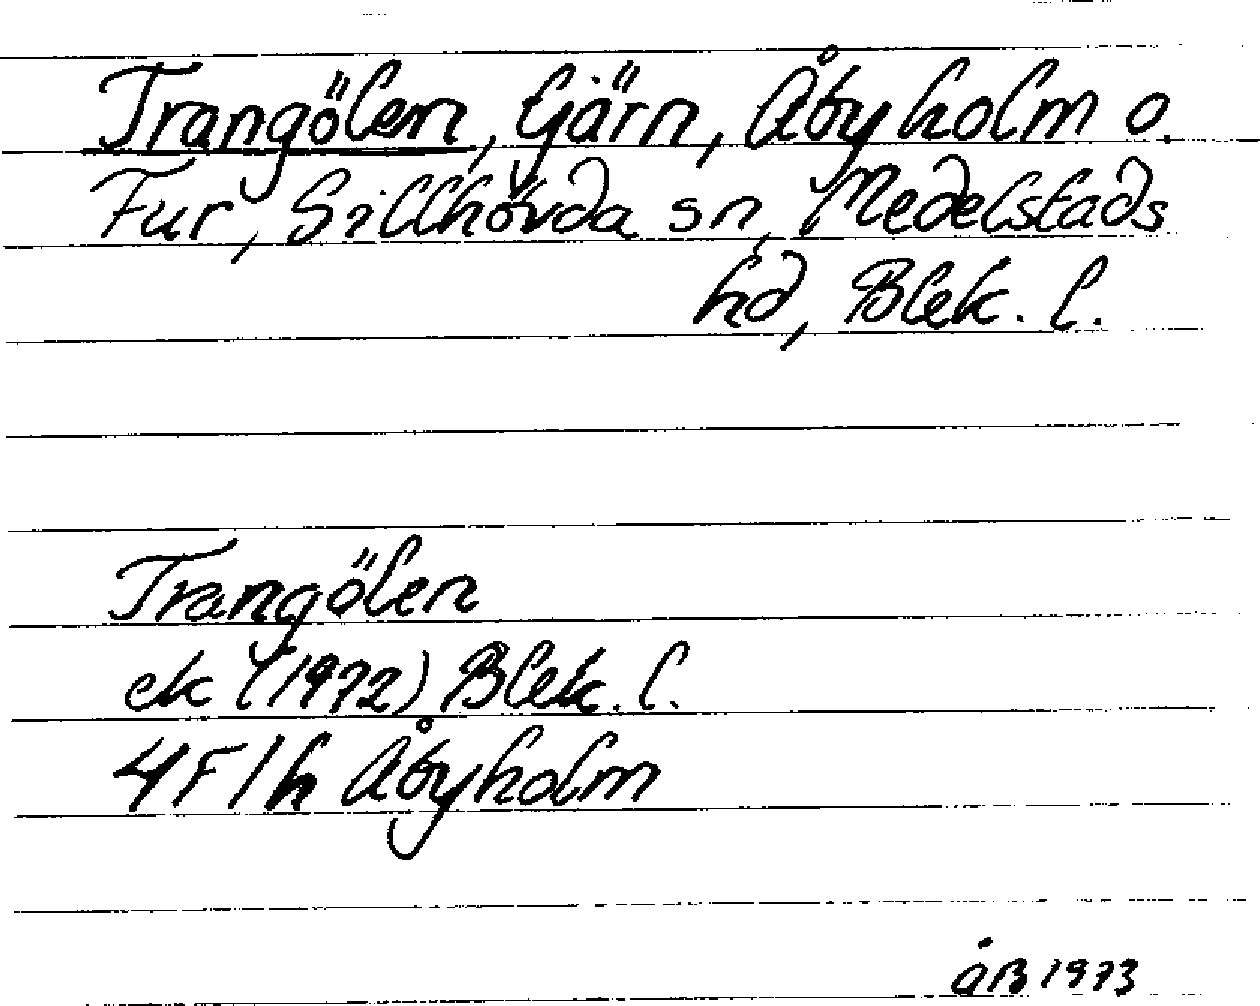 Trangölen, tjärn, Åbyholm o.
Fur, Sillhövda sn, Medelstads
hd, Blek. l.
Trangölen
ek (1972) Blek. l.
4F1h Åbyholm
ÅB 1973